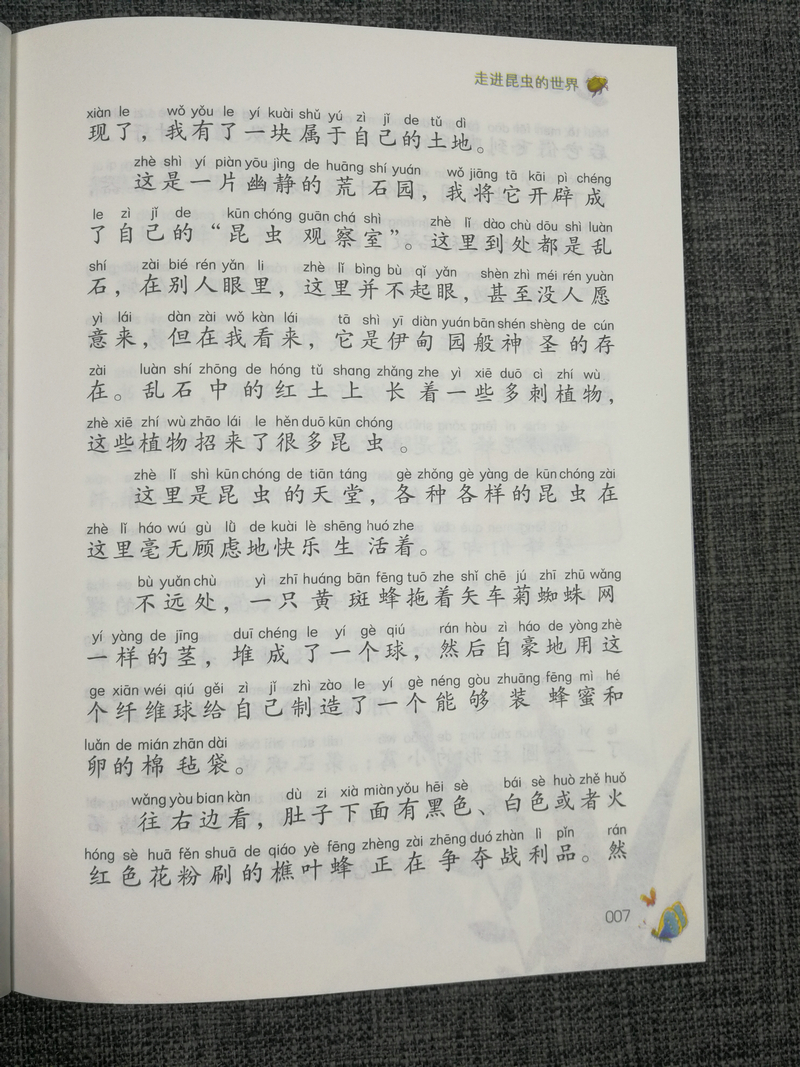 走进昆虫的世界
xiàn le wǒ yǒu le yí kuài shǔ yú zì jǐ de tǔ dì
现了，我有了一块属于自己的土地。
zhè shì yí piàn yōu jìng de huāng shí yuán wǒ jiāng tā kāi pì chéng
这是一片幽静的荒石园，我将它开辟成
le zì jǐ de kūn chóng guān chá shì zhè lǐ dào chù dōu shì luàn
了自己的“昆虫观察室”。这里到处都是乱
shí zài bié rén yǎn li zhè lǐ bìng bù qǐ yǎn shèn zhì méi rén yuàn
石，在别人眼里，这里并不起眼，甚至没人愿
yì lái dàn zài wǒ kàn lái tā shì yī diàn yuán bān shén shèng de cún
意来，但在我看来，它是伊甸园般神圣的存
zài luàn shí zhōng de hóng tǔ shang zhǎng zhe yì xiē duō cì zhí wù
在。乱石中的红土上长着一些多刺植物，
zhè xiē zhí wù zhāo lái le hěn duō kūn chóng
这些植物招来了很多昆虫。
zhè lǐ shì kūn chóng de tiān táng gè zhǒng gè yàng de kūn chóng zài
这里是昆虫的天堂，各种各样的昆虫在
zhè lǐ háo wú gù lǜ de kuài lè shēng huó zhe
这里毫无顾虑地快乐生活着。
bù yuǎn chù yì zhī huáng bān fēng tuō zhe shǐ chē jú zhī zhū wǎng
不远处，一只黄斑蜂拖着矢车菊蜘蛛网
yí yàng de jīng duī chéng le yí gè qiú rán hòu zì háo de yòng zhè
一样的茎，堆成了一个球，然后自豪地用这
ge xiān wéi qiú gěi zì jǐ zhì zào le yí gè néng gòu zhuāng fēng mì hé
个纤维球给自己制造了一个能够装蜂蜜和
luǎn de mián zhān dài
卵的棉毡袋。
wǎng yòu bian kàn dù zi xià miàn yǒu hēi sè bái sè huò zhě huǒ
往右边看，肚子下面有黑色、白色或者火
hóng sè huā fěn shuā de qiáo yè fēng zhèng zài zhēng duó zhàn lì pǐn rán
红色花粉刷的樵叶蜂正在争夺战利品。然
007